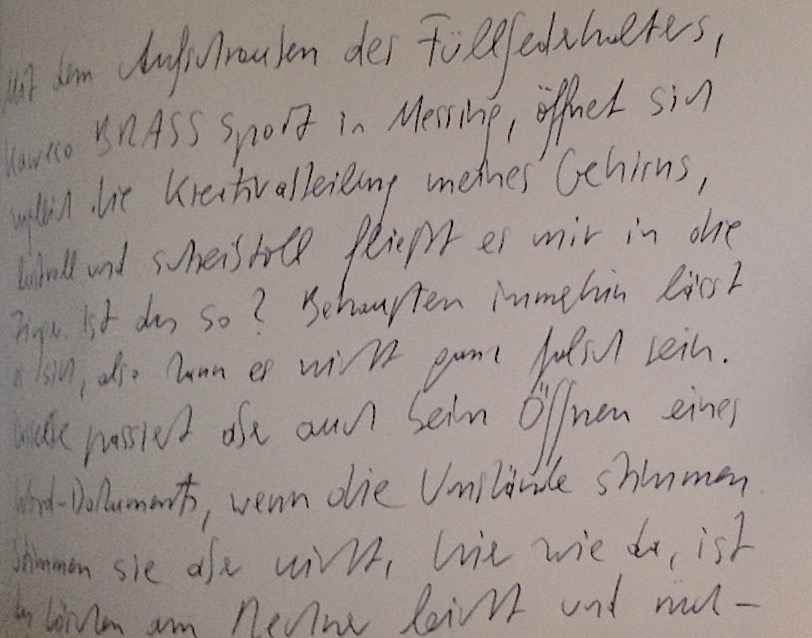 Mit dem Aufschrauben des Füllfederhalters,
Kaweco BRASS Sport in Messing, öffnet sich
zugleich die Kreativabteilung meines Gehirns,
und fließt es mir in die
Finger. Ist das so? Behaupten immerhin lässt
es sich, also kann es nicht ganz falsch sein.
passiert aber auch beim Öffnen eines
Word-Dokuments, wenn die Umstände stimmen.
Stimmen sie aber nicht, hier wie da, ist
das Löschen am Rechner leicht und rück-